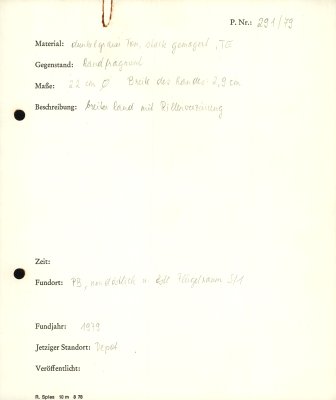 P. Nr.: 291/79
Material: dunkelgrauer Ton, stark gemagert, TS
Gegenstand: Randfragment
Maße: 22 cm Ø Breite des Randes 2,9 cm
Beschreibung: breiter Rand mit Rillenverzierung
Zeit:
Fundort: PB, nordöstlich
Fundjahr: 1979
Jetziger Standort: Depot
Veröffentlicht:
R. Spies 10 m 8 78